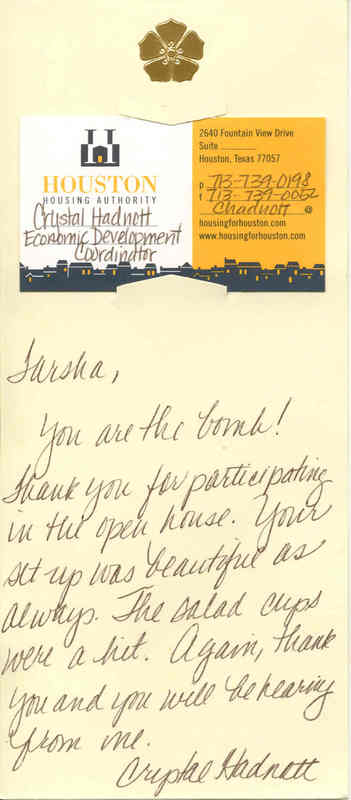 2640 Fountain View Drive
Suite
Houston, Texas 77057
p 713-739-0198
f 713-739-0052
chadnott @
housingforhouston.com
www.housingforhouston.com
H
HOUSTON
HOUSING AUTHORITY
Crystal Hadnott
Economic Development
Coordinator
Tarsha,
You are the bomb!
Thank you for participating
in the open house. Your
set up was beautiful as
always. The salad cups
were a hit. Again, thank
you and you will be hearing
from me.
Crystal Hadnott